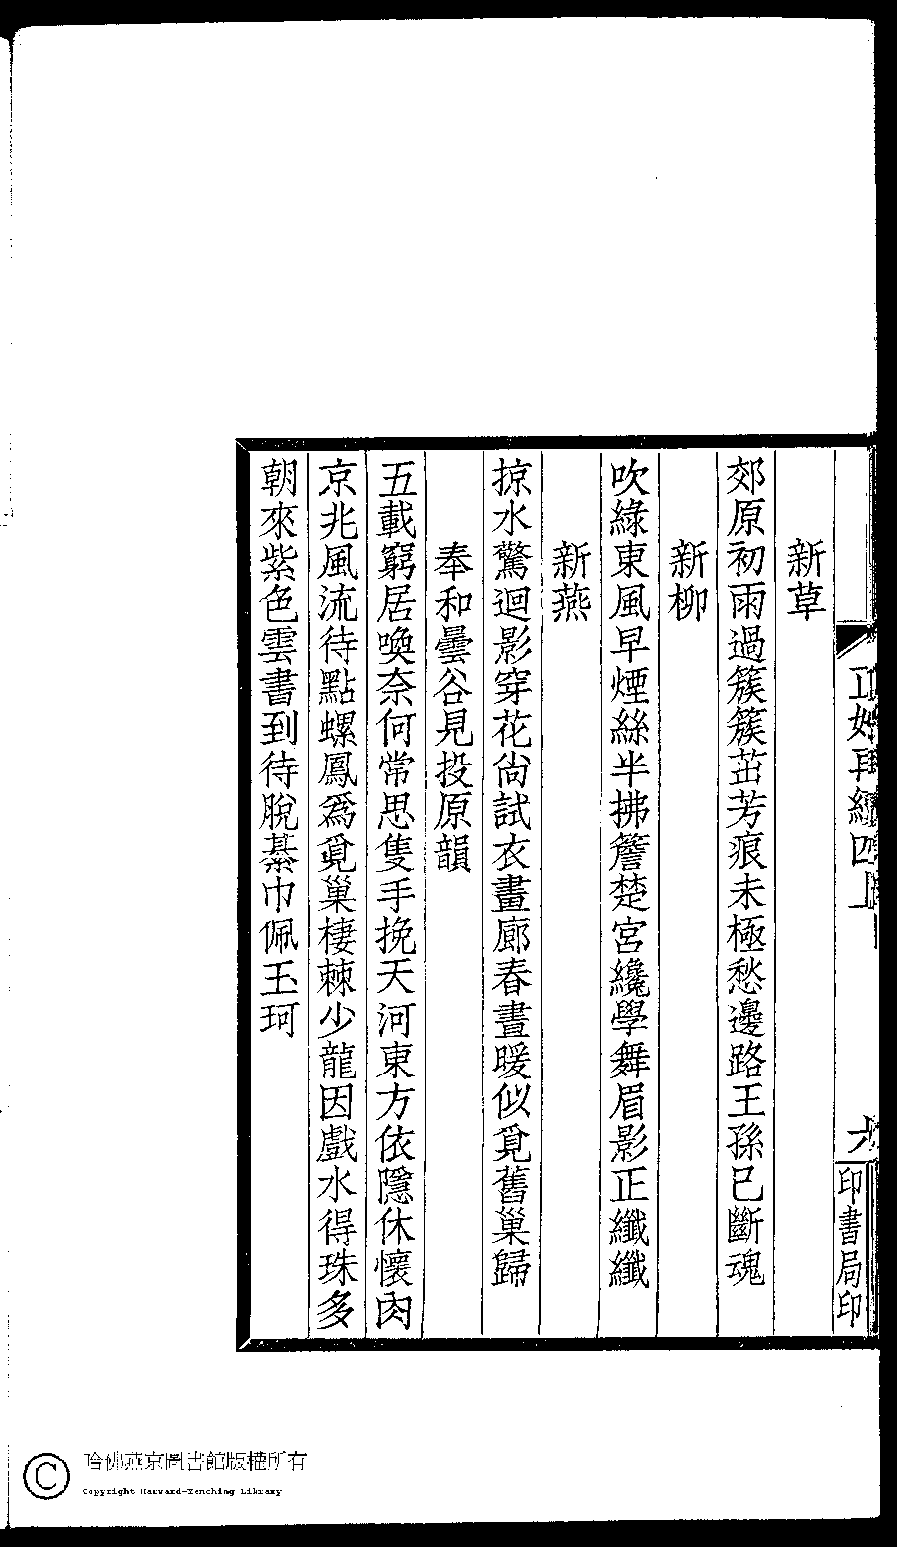 新草
郊原初雨過簇簇茁芳痕未極愁邊路王孫已斷魂
新柳
吹綠東風早煙絲半拂簷楚宮纔學舞眉影正纖纖
新燕
掠水驚迴影穿花尙試衣畫廊春晝暖似覓舊巢歸
奉和曇谷見投原韻
五載窮居喚奈何常思隻手挽天河東方依隱休懷肉
京兆風流待點螺鳳爲覓巢棲棘少龍因戲水得珠多
朝來紫色雲書到待脫綦巾佩玉珂
四上
印書局印
哈佛燕京圖書館版權所有
Copyright Harvard-Yenching Library